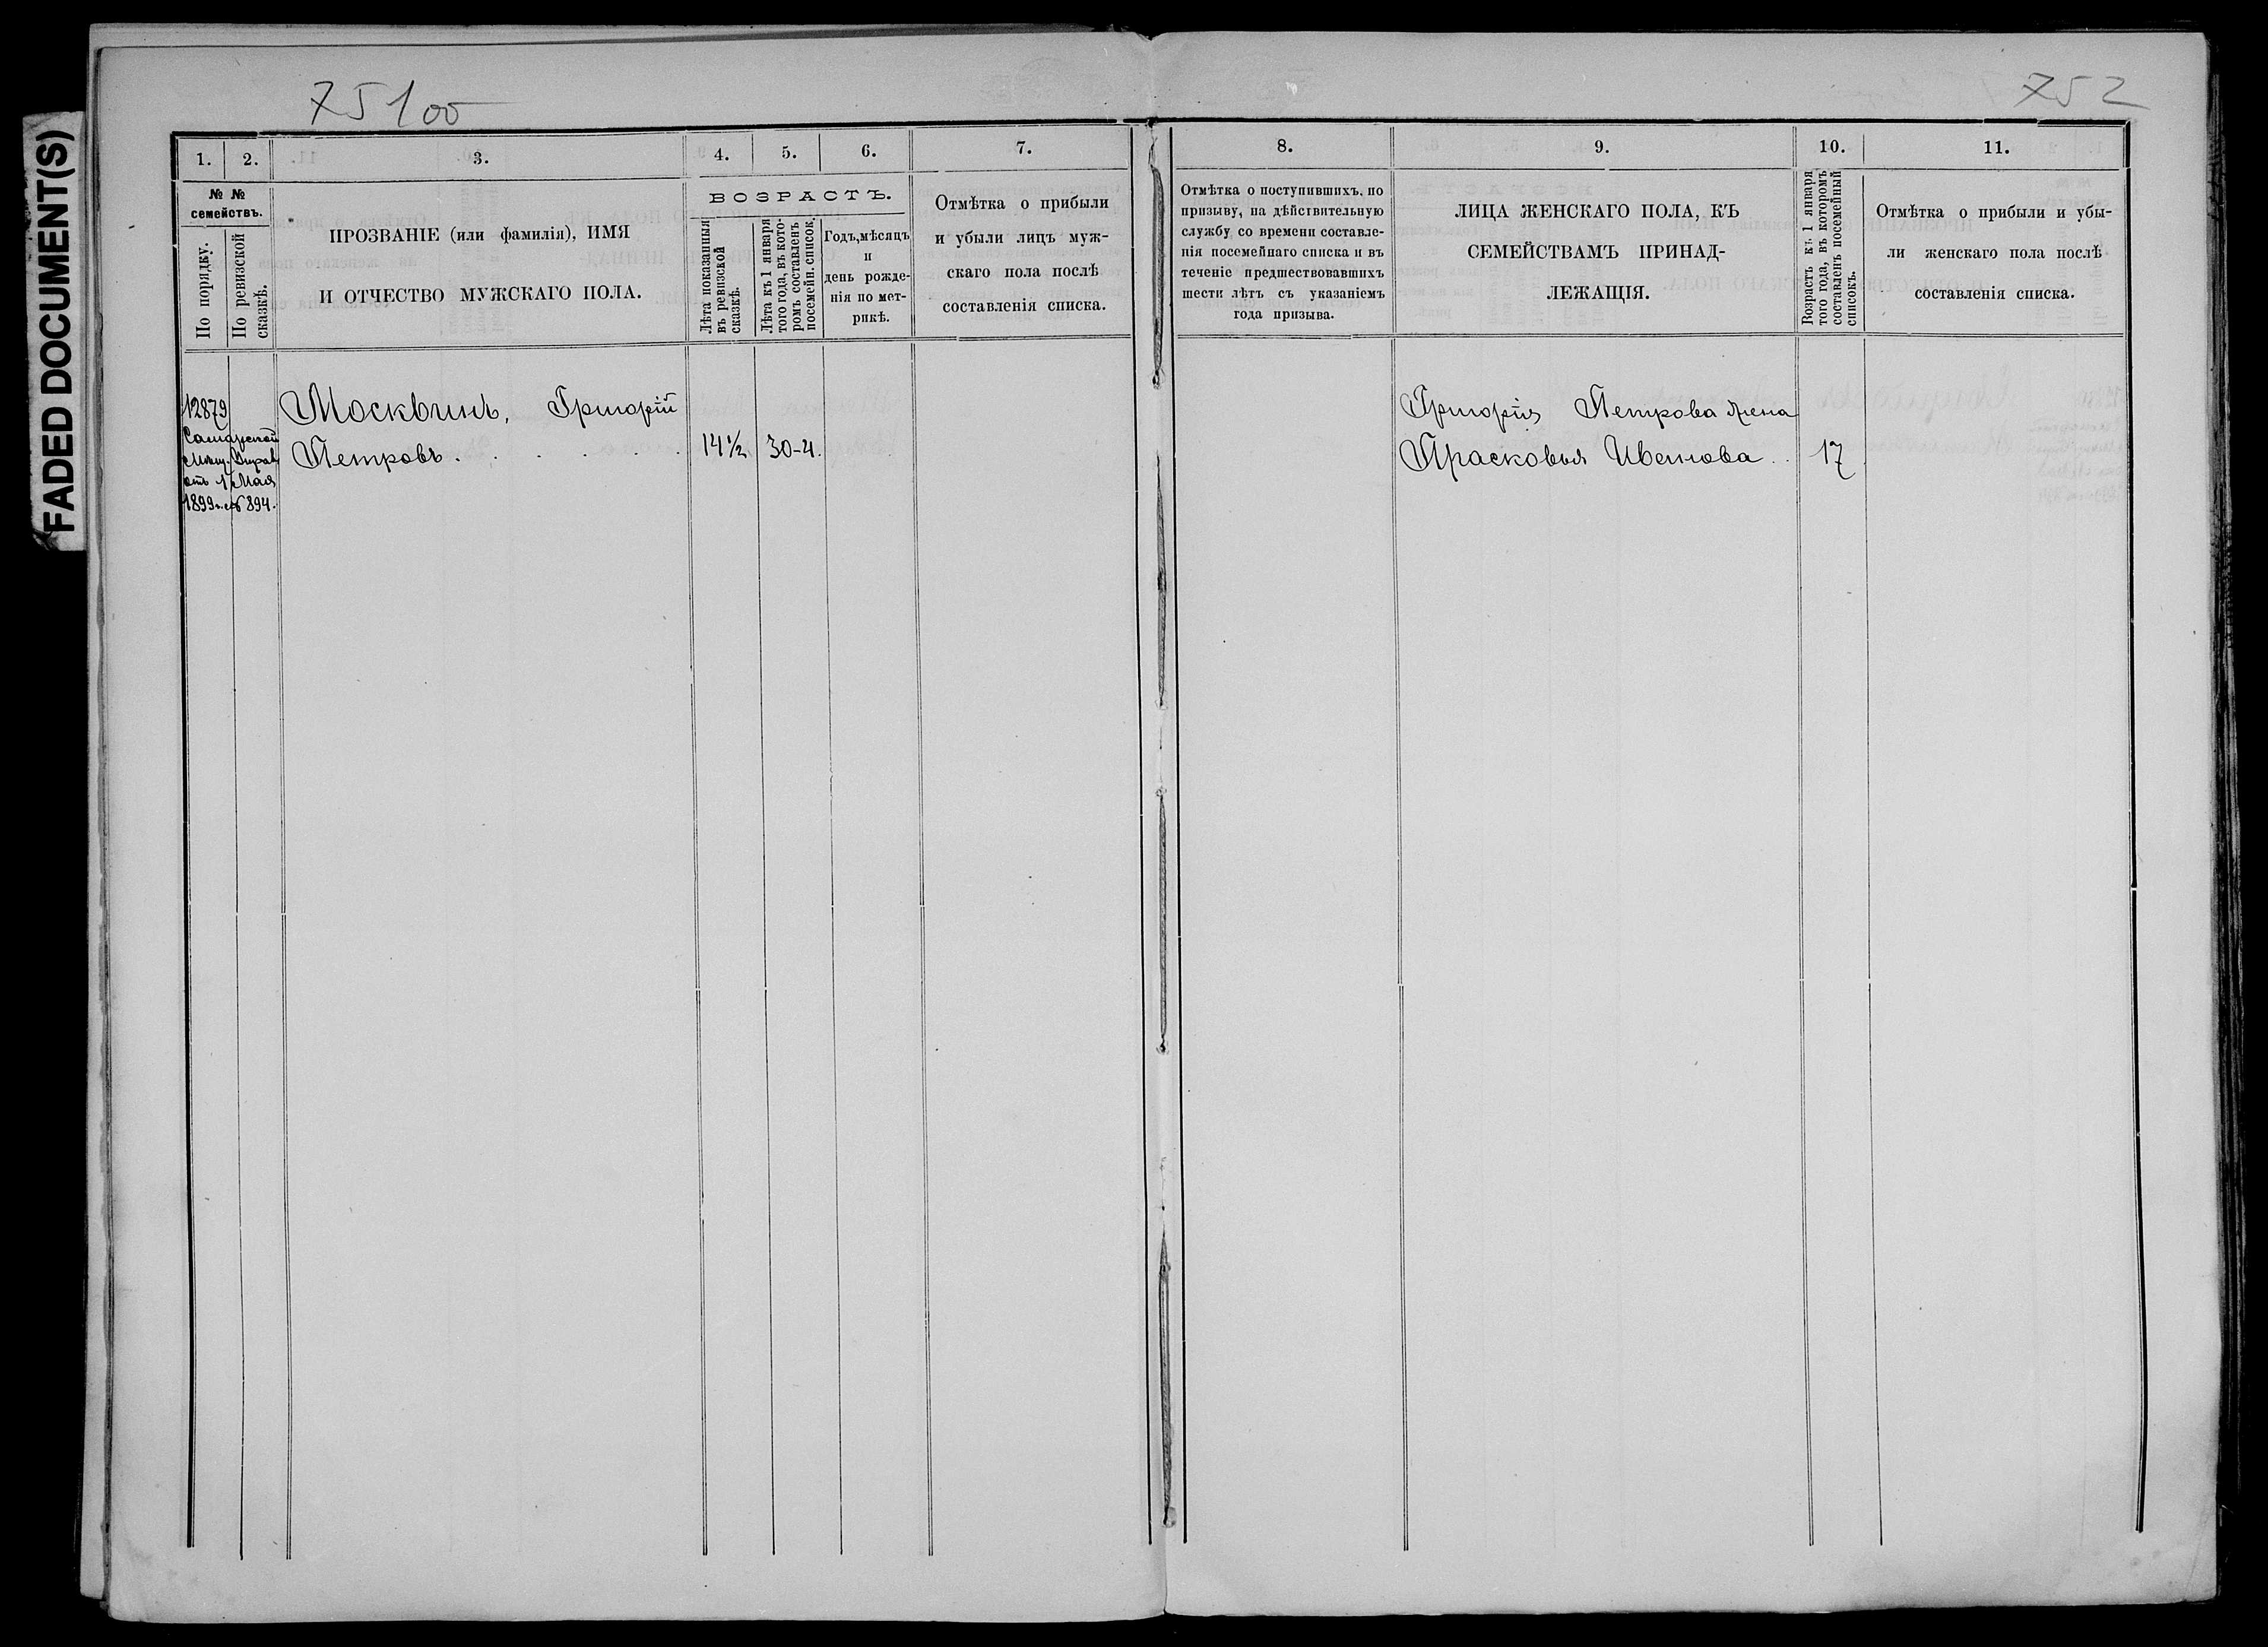 FADED DOCUMENT(S)
75100
752
1. 2. 3. 4. 5. 6. 7.
№ №
семействъ.
По порядку.
По ревизской
сказкѣ.
ПРОЗВАНІЕ (или фамилія), ИМЯ
И ОТЧЕСТВО МУЖСКАГО ПОЛА.
ВОЗРАСТЪ.
Лѣта показанныя
въ ревизской
сказкѣ.
Лѣта къ 1 января
того года, въ кото-
ромъ составленъ
посемейн. список.
Годъ, мѣсяцъ
и
день рожде-
нія по мет-
рикѣ.
Отмѣтка о прибыли
и убыли лицъ муж-
скаго пола послѣ
составленія списка.
8. 9. 10. 11.
Отмѣтка о поступившихъ, по
призыву, на дѣйствительную
службу со времени составле-
нія посемейнаго списка и въ
теченіе предшествовавшихъ
шести лѣтъ съ указаніемъ
года призыва.
ЛИЦА ЖЕНСКАГО ПОЛА, КЪ
СЕМЕЙСТВАМЪ ПРИНАД-
ЛЕЖАЩІЯ.
Возрастъ къ 1 января
того года, въ которомъ
составленъ посемейный
списокъ.
Отмѣтка о прибыли и убы-
ли женскаго пола послѣ
составленія списка.
12879
Самарской
Мѣщ. Управ
отъ 1 Мая
1899 г. № 894.
Москвинъ, Григорій
Петровъ . . . . . . 14½ 30-4.
Григорія Петрова жена
Прасковья Ивелова . . 17